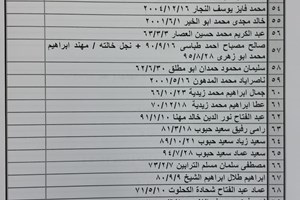 ٥٤ محمد فايز يوسف النجار ٢٠٠٤/١٢/١٦
٥٥ خالد مجدى محمد ابو الخير ٢٠٠١/٦/١
٥٦ عبد الكريم محمد حسين العصار ٦٣/٣/٣
٥٧ صالح مصباح احمد طباسى ٩٠/٩/١٦ + نجل خالته / مهند ابراهيم
محمد ابو زهرى ٩٥/٨/٢٨
٥٨ سليمان محمود حمدان ابو مطلق ٦٢/٦/٣٠
٥٩ ناصرابراد محمد المدهون ٢٠٠١/٥/١٦
٦٠ جمال ابراهيم محمد زيدية ٦٦/١٠/٢٣
٦١ عطا ابراهيم محمد زيدية ٧٠/١٢/١٨
٦٢ عبد الفتاح نور الدين خالد مهنا ٩١/١/١٠
٦٣ رامى رفيق سعيد حبوب ٨١/٣/١٨
٦٤ سعيد زياد سعيد حبوب ٨٩/١٠/٢١
٦٥ سعيد عماد سعيد حبوب ٩٤/٧/٢٨
٦٦ مصطفى سلمان مسلم الترابين ٧٣/٢/٧
٦٧ ابراهيم طلال ابراهيم الشيخ ٨٠/٩/٩
٦٨ عماد عبد الفتاح شحادة الكحلوت ٧١/٥/١٠